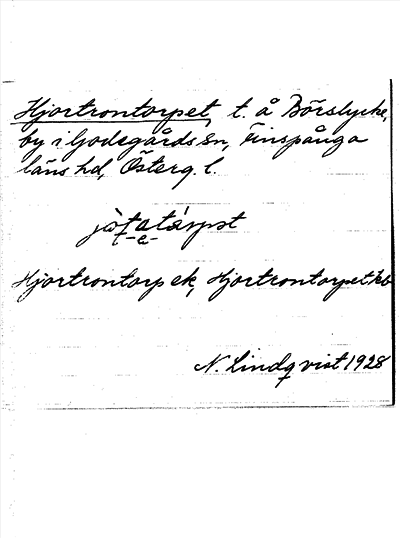 Hjortrontorpet, t. å Börslycke,
by i Godegårds sn, Finspånga
läns hd, Österg. l.
Hjortrontorp ek, Hjortrontorpet kb
N. Lindqvist 1928